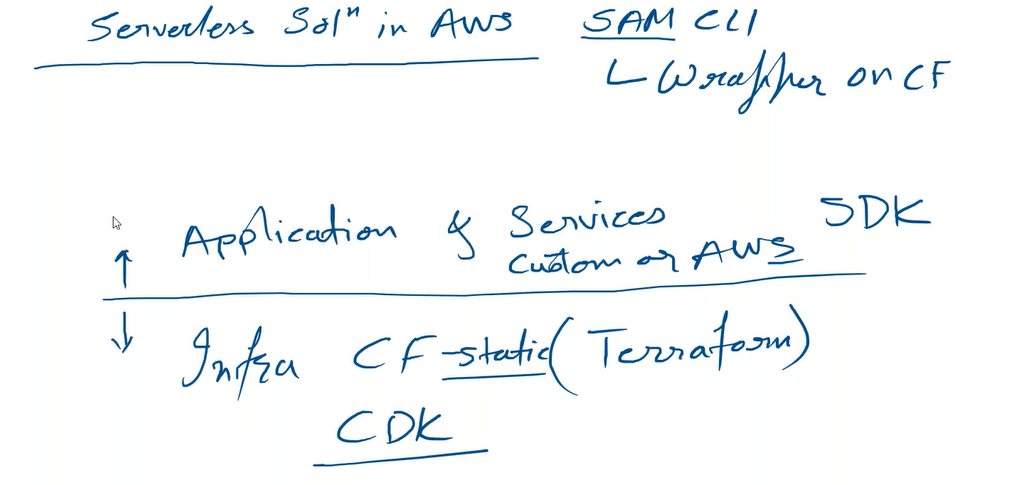 Serverless Solⁿ in AWS
SAM CLI
Wrapper on CF
Application & Services SDK
Custom or AWS
Infra CF-static (Terraform)
CDK